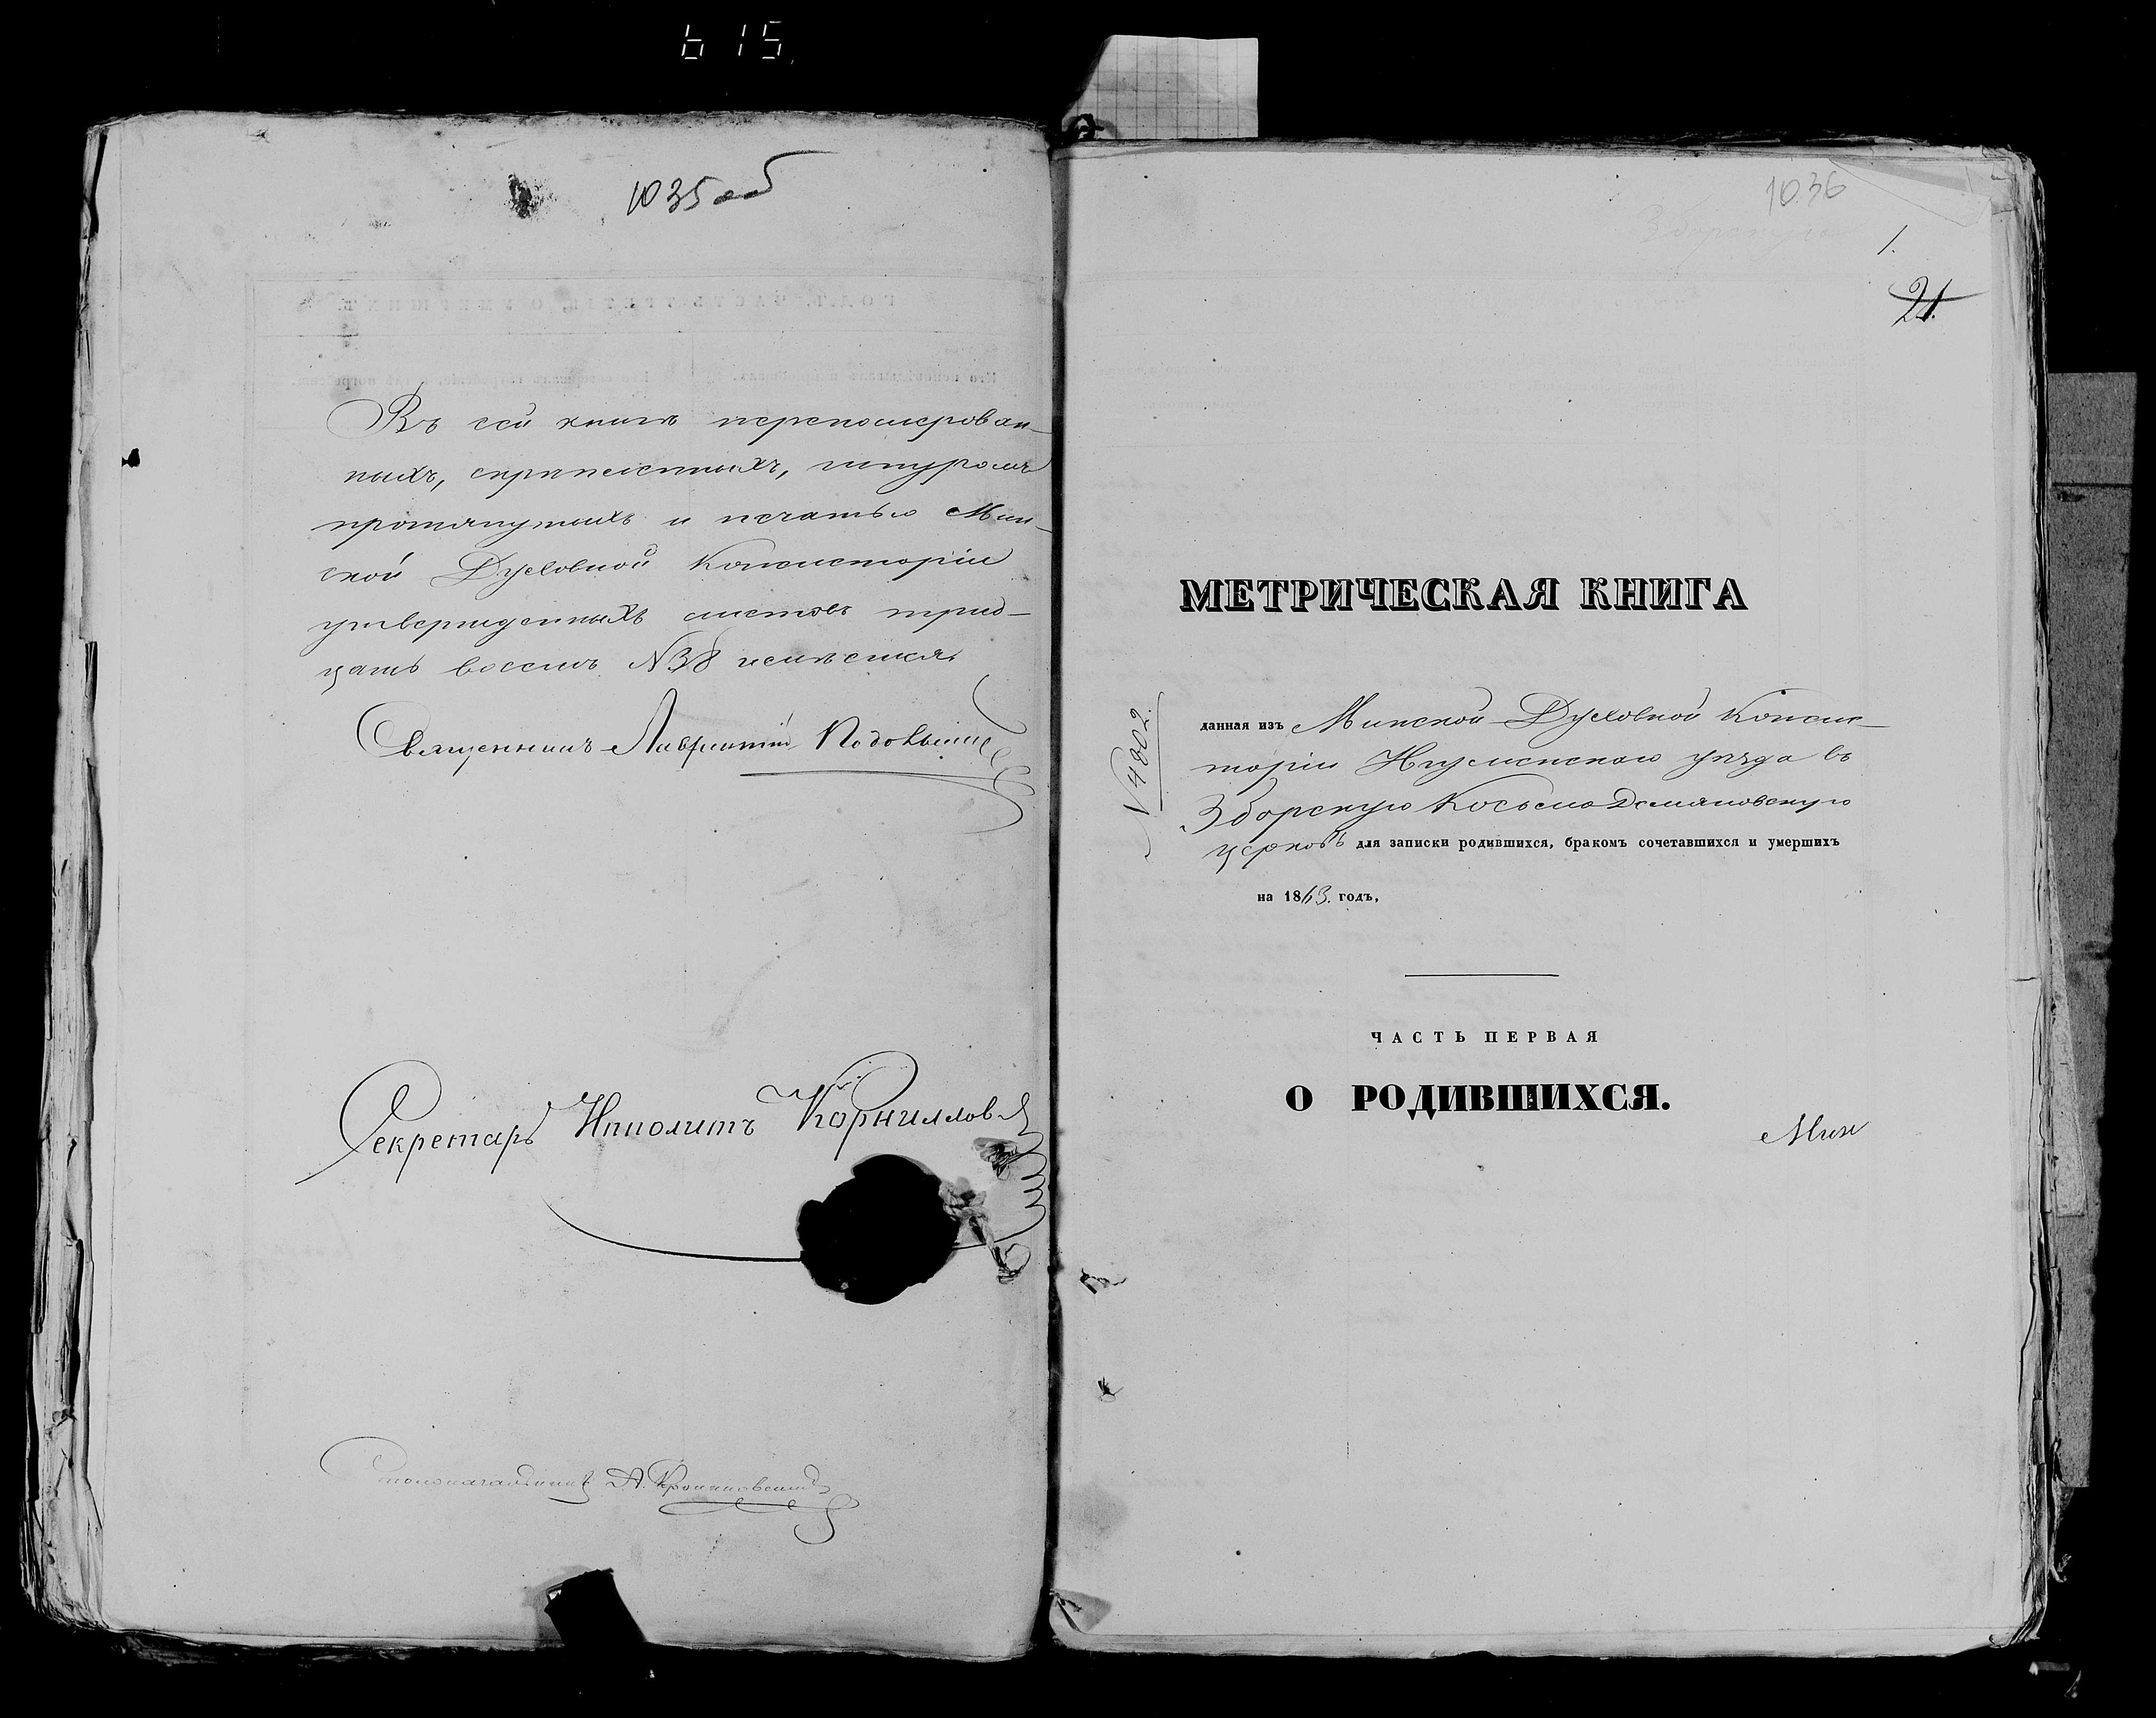 615
1035 об
Въ сей книгѣ переномерован-
ныхъ, скрѣпленныхъ, шнуромъ
протянутыхъ и печатью Мин-
ской Духовной Консисторіи
утвержденныхъ листовъ трид-
цать восемь N38 имѣется.
Священникъ Лаврентій
Секретарь Ипполитъ Корниллов
Столоначальникъ А.
1036
Зборскую
1.
21.
МЕТРИЧЕСКАЯ КНИГА
N4802.
данная изъ Минской Духовной Консис-
торіи Игуменскаго уѣзда въ
Зборскую Косьмо Демяновскую
церковь для записки родившихся, бракомъ сочетавшихся и умершихъ
на 1863. годъ,
ЧАСТЬ ПЕРВАЯ
О РОДИВШИХСЯ.
Мин